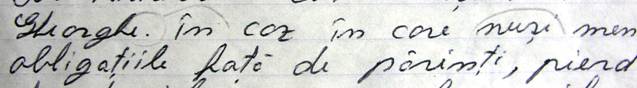 Gheorghe. în caz în care nuși men
obligațiile față de părinți, pierd